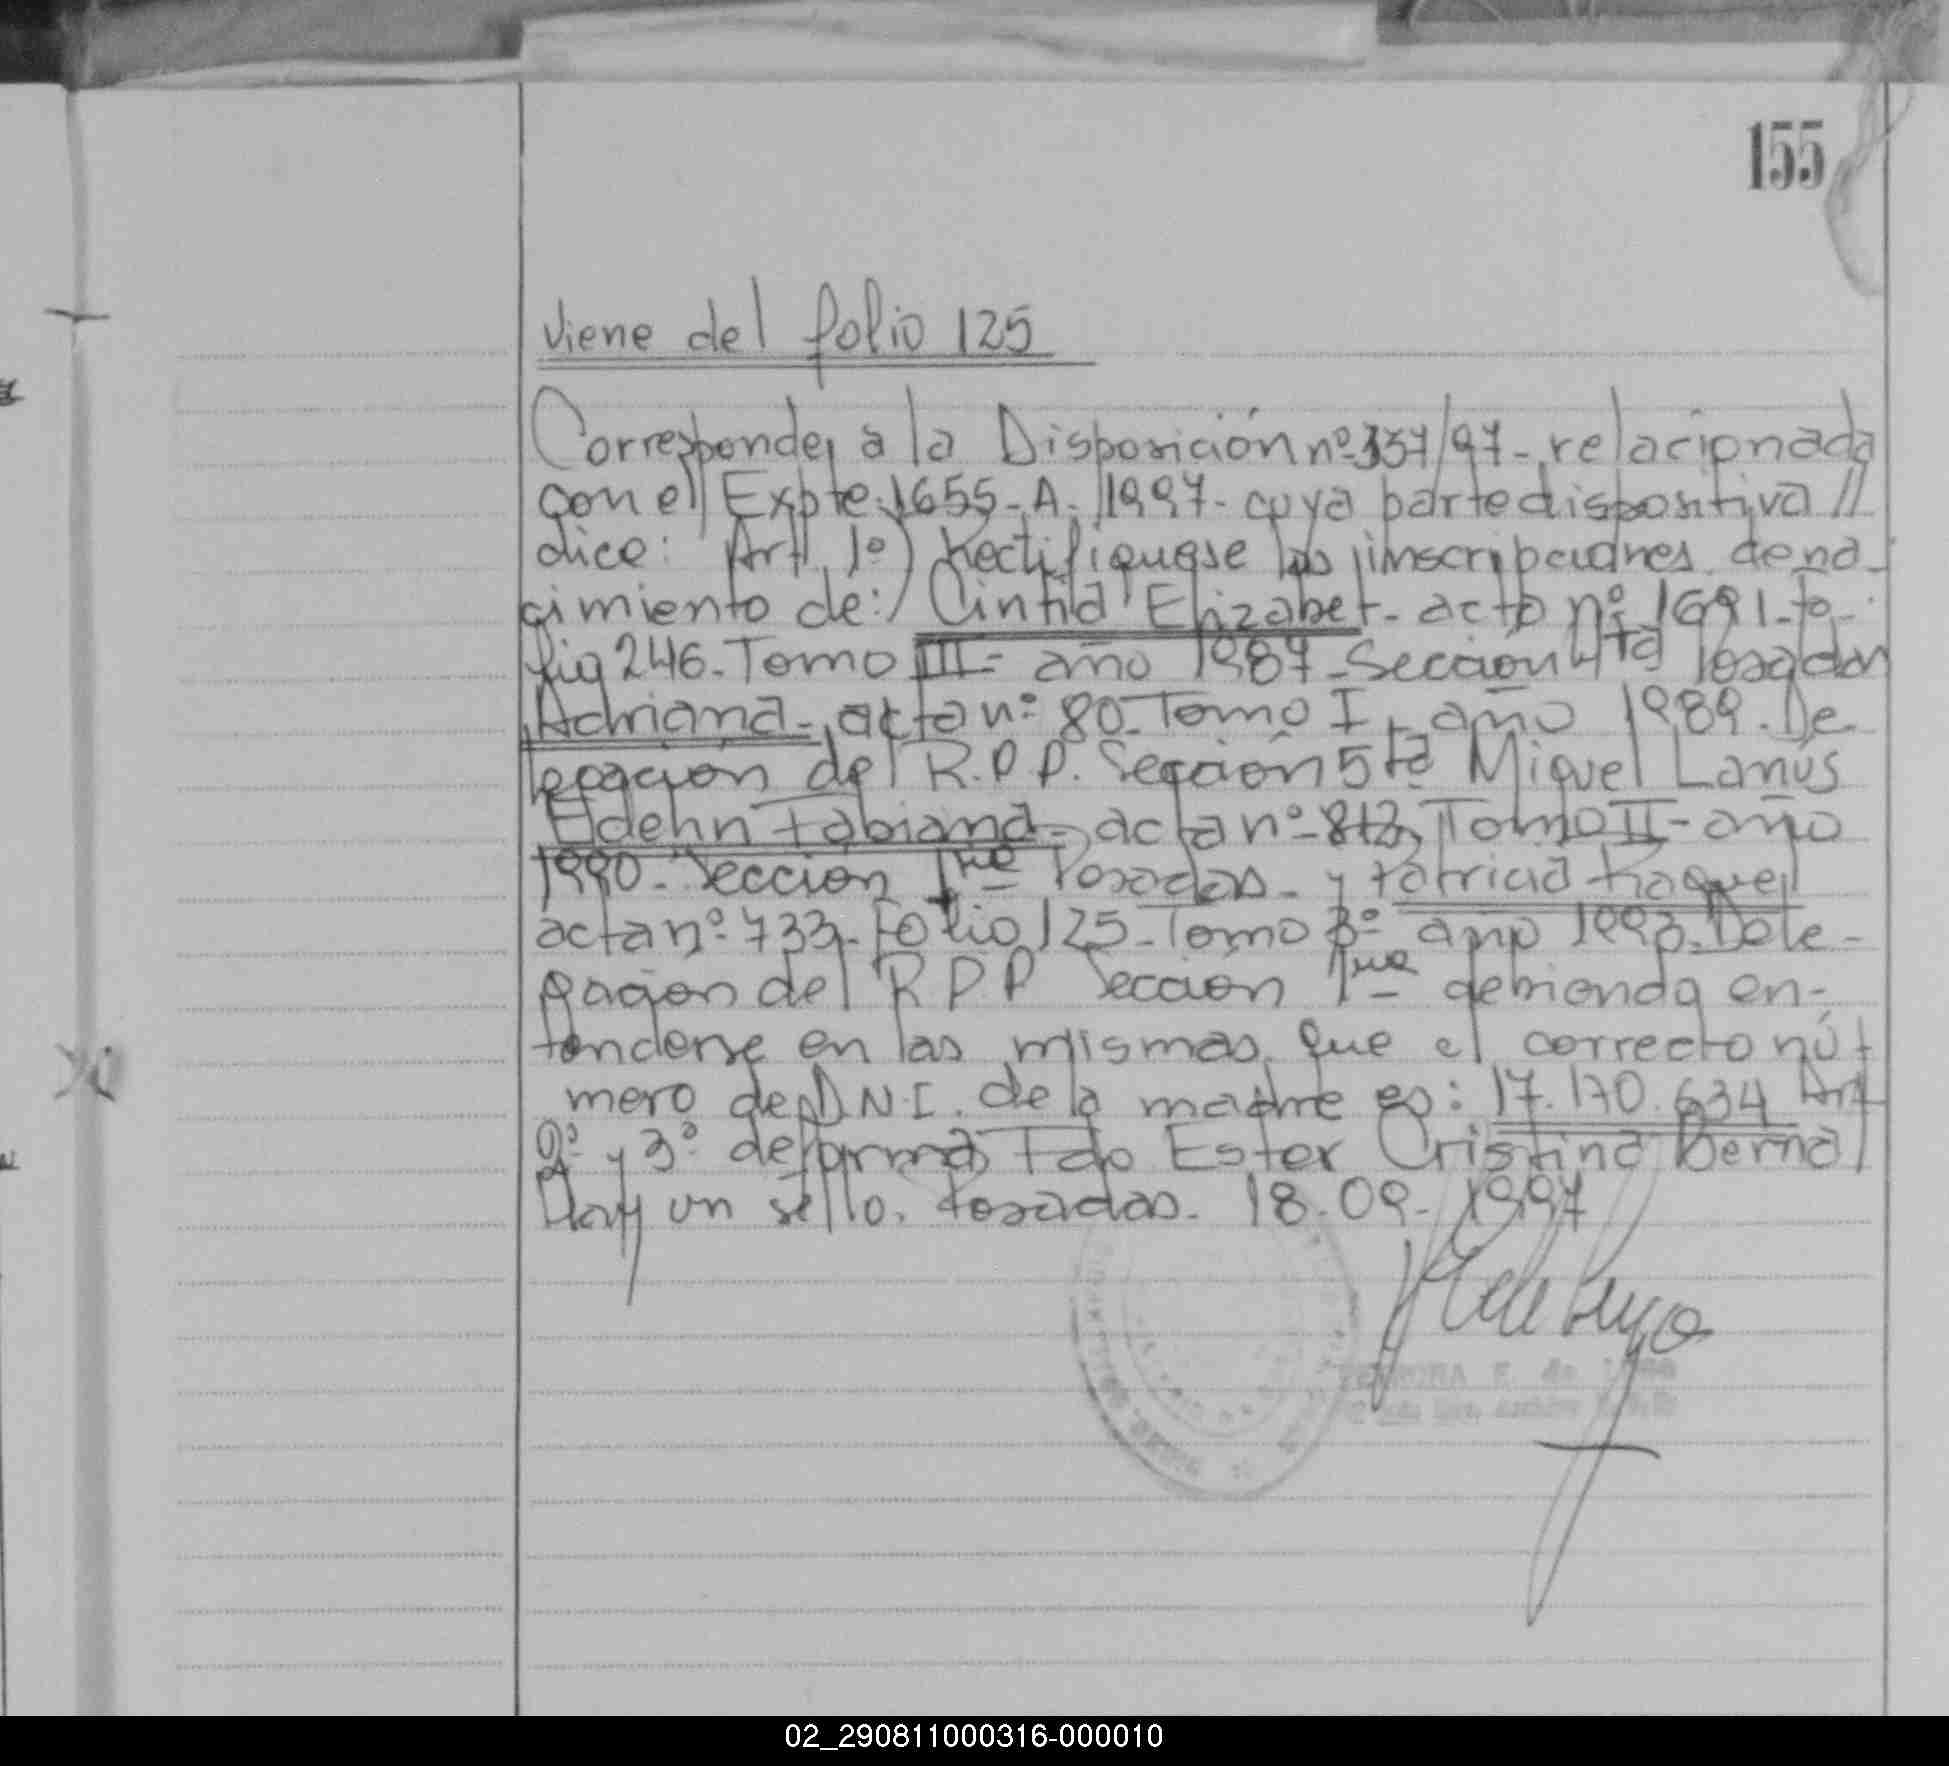 155
Viene del folio 125
Corresponde a la Disposición nº 357/97- relacionada
con el Expte. 1655-A-1997- cuya parte dispositiva //
dice: Art 1º) Rectifiquese las inscripciones de na-
cimiento de: Cintia Elizabet- acta nº 1691-
246- Tomo III- año 1987- Sección 4ta Posadas
Adriana- acta nº 80- Tomo I- año 1989- De
legación del R.P.P. Sección 5ta Miguel Lanús
Fabiana- acta nº Tomo II- año
1990- Sección 1ra Posadas- y Patricia Raquel
acta nº 733- Folio 125- Tomo 3º año 1993- Dele-
gación del R.P.P Sección 1ra debiendo en-
tenderse en las mismas que el correcto nú-
mero de D.N.I. de la madre es: 17.170.634 Art
2º y 3º de forma Fdo Ester Cristina Bernal
Hay un sello. Posadas- 18-09-1997
02_290811000316-000010